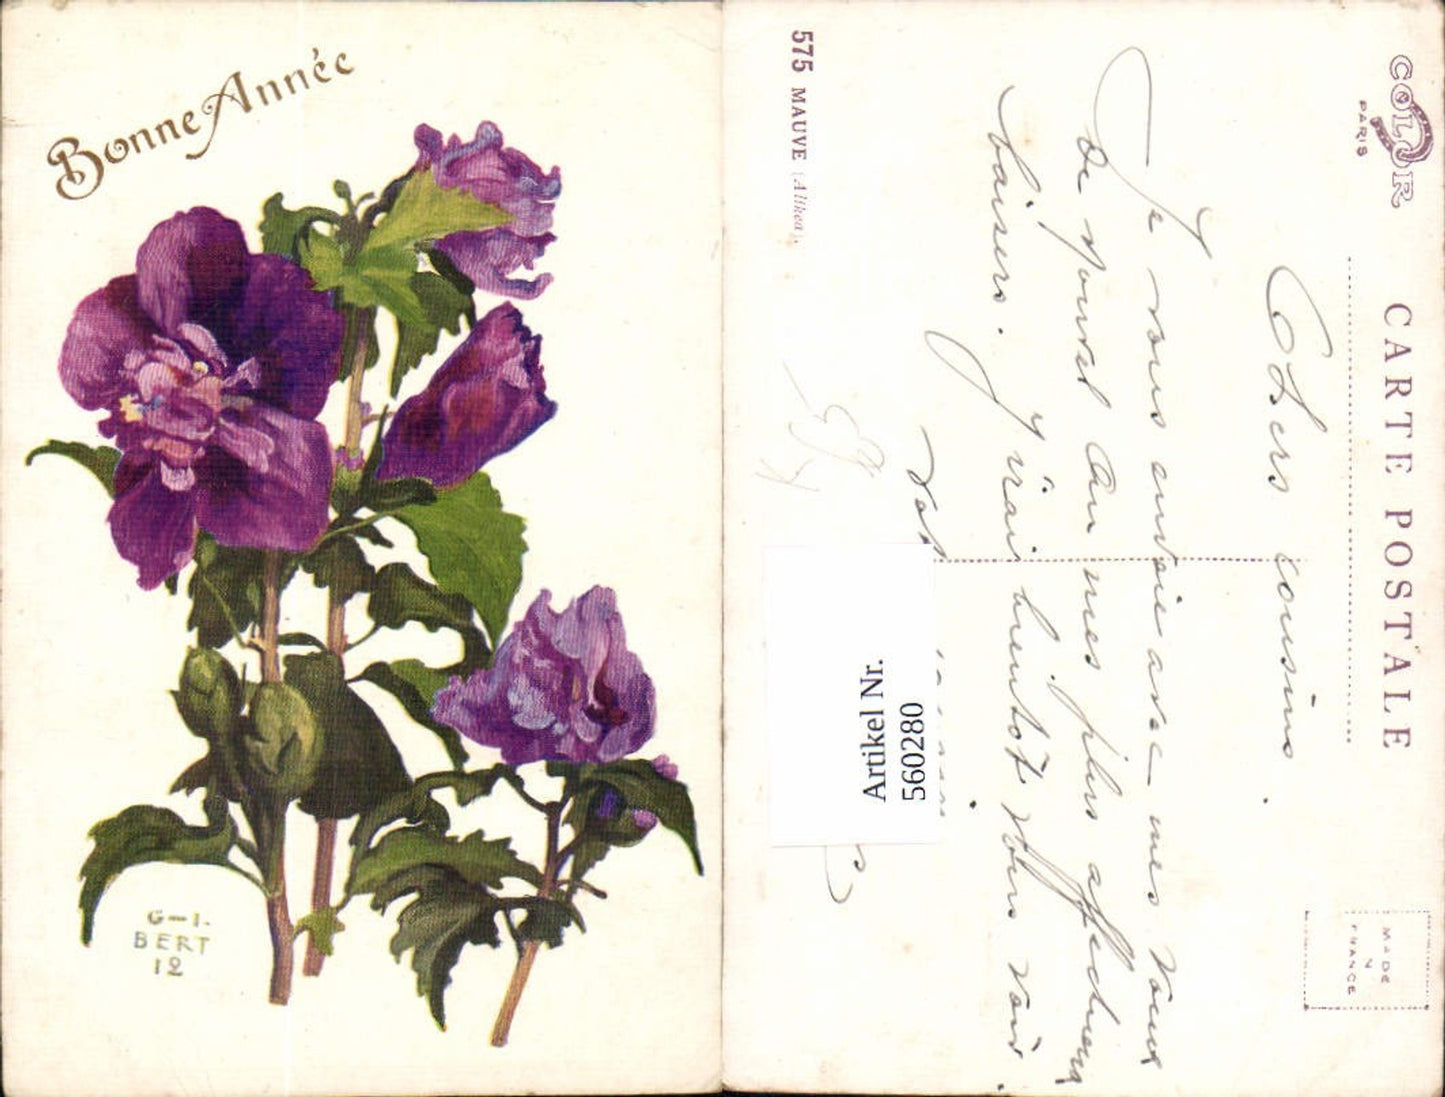 Bonne Année
G-I.
BERT
12
COLOR
PARIS
CARTE POSTALE
MADE
N
FRANCE
Chers cousins.
Je vous envoie avec mes vœux
de nouvel an mes plus affectueux
baisers. J'irai bientôt vous voir.
575 MAUVE (Althea).
Artikel Nr.
560280